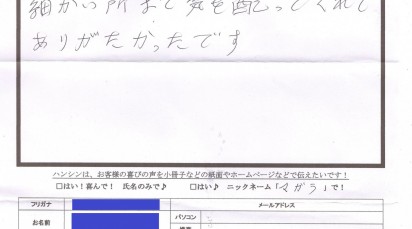 細かい所まで気を配ってくれて
ありがたかったです
ハンシンは、お客様の喜びの声を小冊子などの紙面やホームページなどで伝えたいです！
□はい！喜んで！ 氏名のみで♪ □はい♪ ニックネーム「マガラ」で！
フリガナ メールアドレス
お名前 パソコン